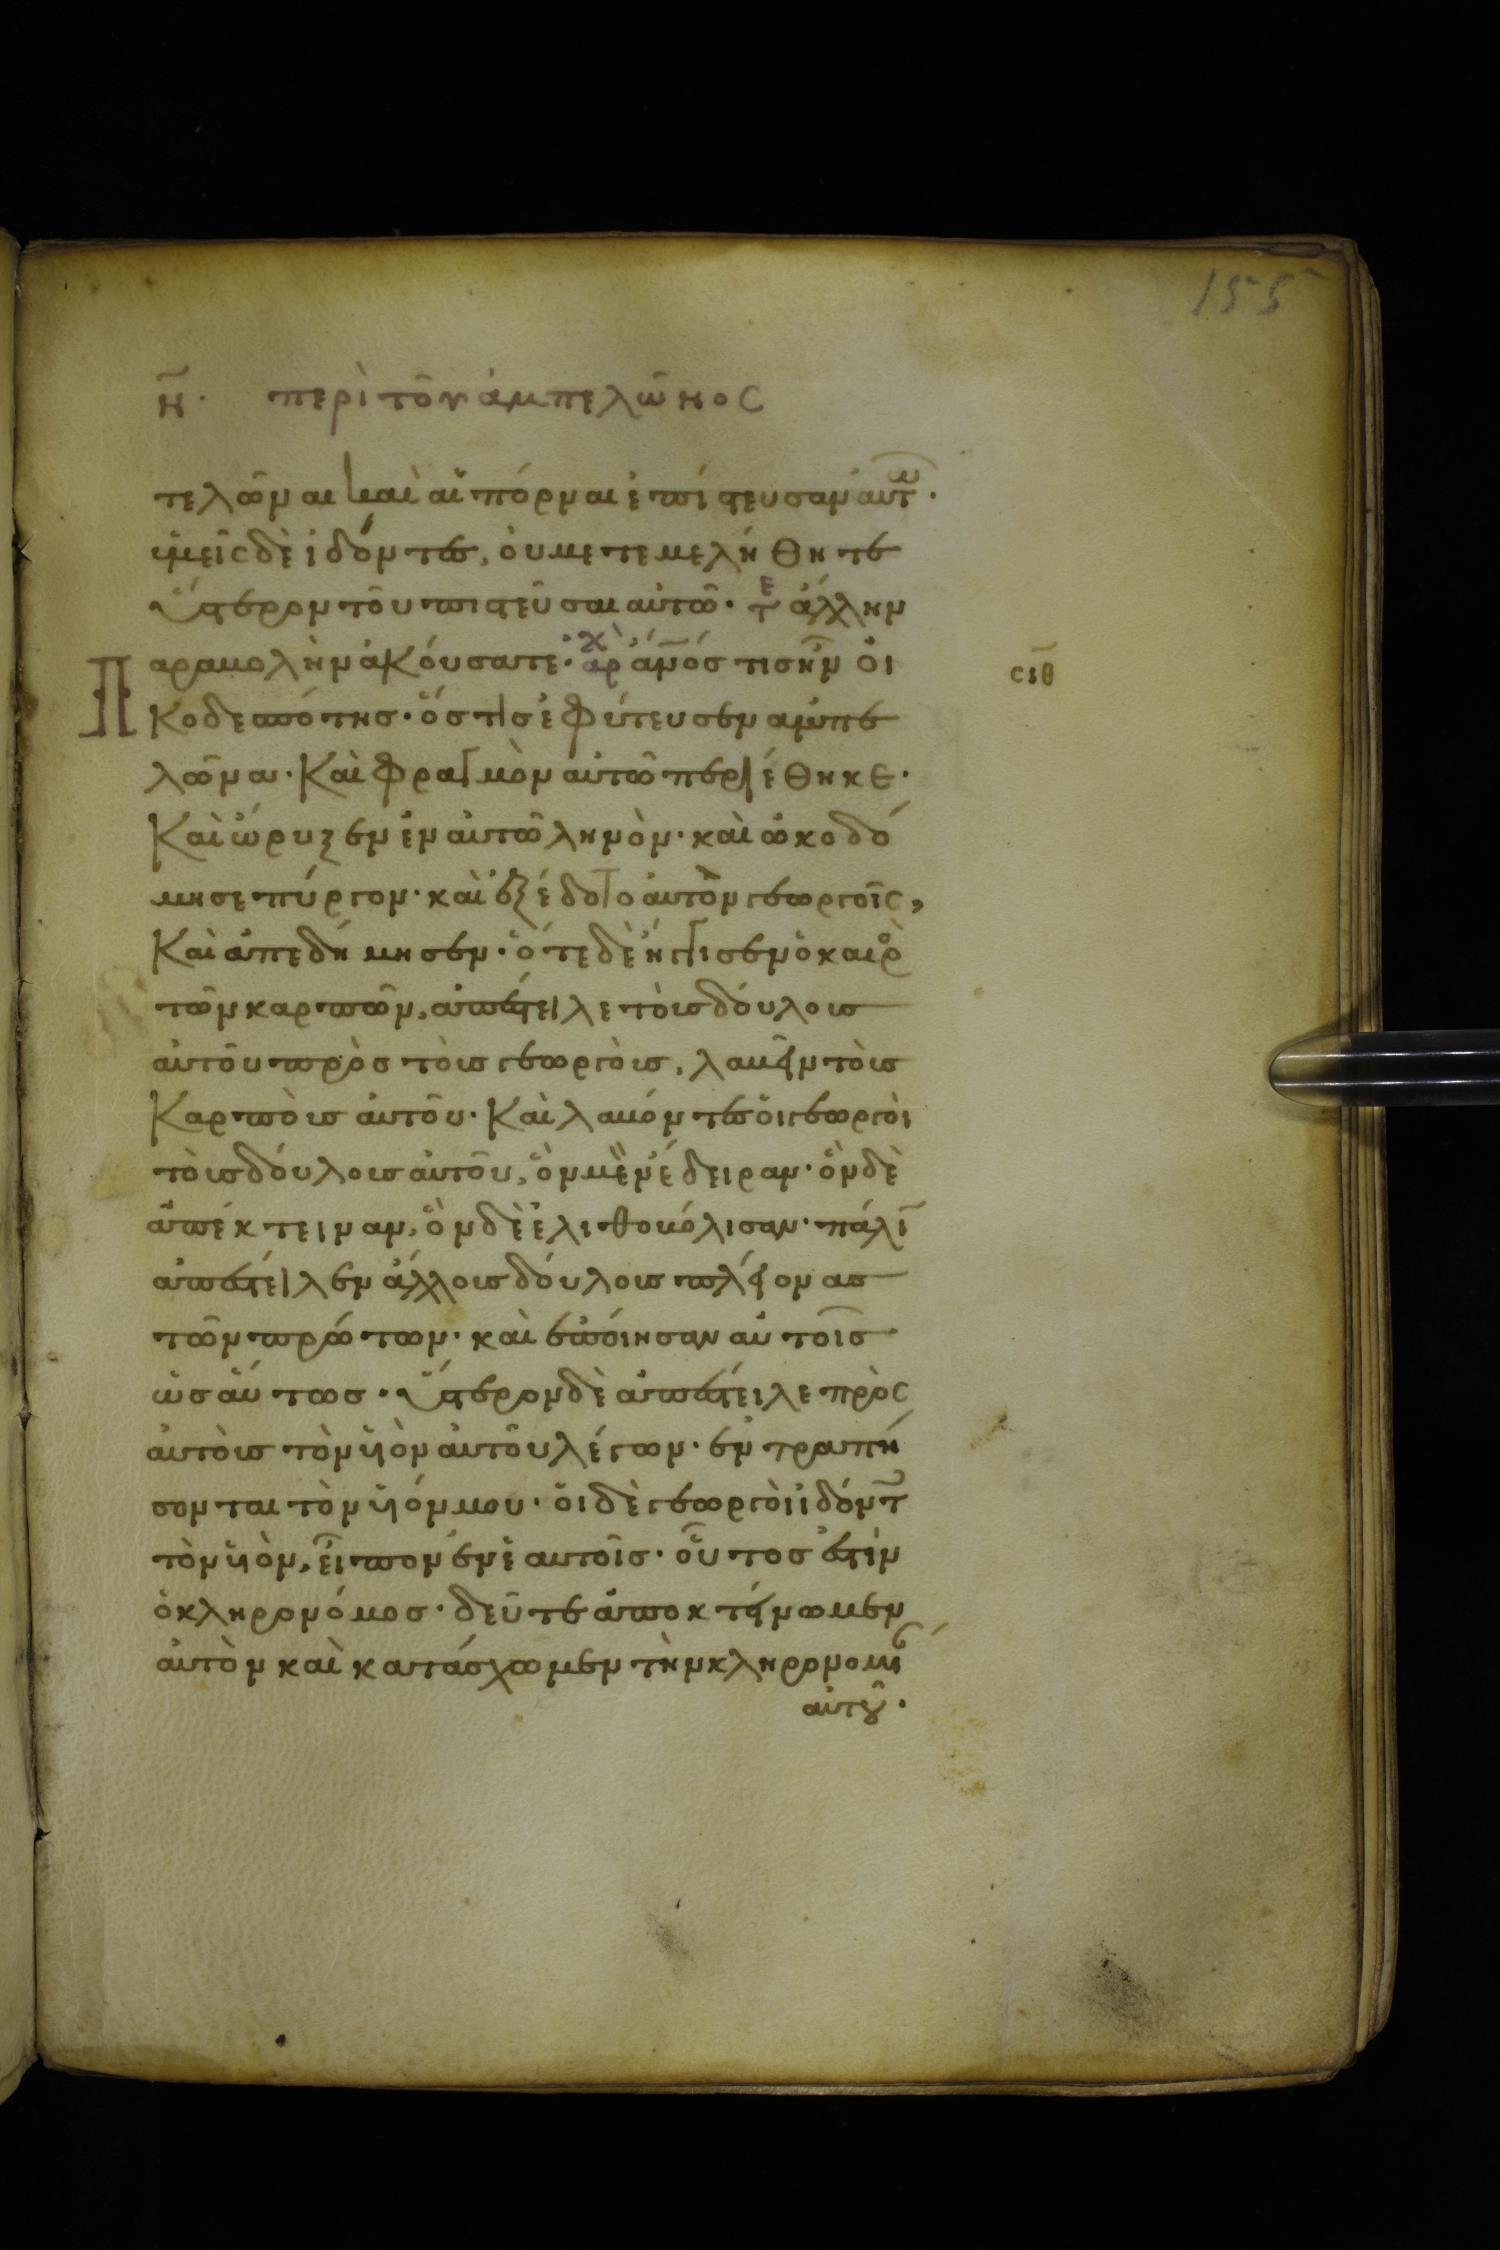 155
η̄· περὶ τοῦ ἀμπελῶνος
τελῶναι καὶ αἱ πόρναι ἐπίστευσαν αὐτ͠ω·
ὑμεῖς δὲ ἰδόντες, οὐ μετεμελήθητε
ὕστερον τοῦ πιστεῦσαι αὐτῶ· τε ἄλλην
Παραβολὴν ἀκούσατε· αρχ ἄν̅ο̅σ τις ἦν οἰ
σιθ
κοδεσπότης· ὅστις ἐφύτευσεν ἀμπε
λῶνα· Καὶ φραγμὸν αὐτῶ περιέθηκε·
Καὶ ὤρυξεν ἐν αὐτῶ ληνὸν· καὶ ὠκοδό
μησε πύργον· καὶ ἐξέδοτο αὐτὸν γεωργοῖς,
Καὶ ἀπεδήμησεν· ὅτε δὲ ἤγγισεν ὁ καιρὸ
τῶν καρπῶν, ἀπέστειλε τοὺς δούλους
αὐτοῦ πρὸς τοὺς γεωργοὺς, λαβεῖν τοὺς
Καρποὺς αὐτοῦ· Καὶ λαβόντες οἱ γεωργοὶ
τοὺς δούλους αὐτοῦ, ὃν μὲν ἔδειραν· ὃν δὲ
ἀπέκτειναν, ὃν δὲ ἐλιθοβόλισαν· πάλῑ
ἀπέστειλεν ἄλλους δούλους πλείονας
τῶν πρώτων· καὶ ἐποίησαν αὐτοῖς
ὡσαύτως· ὕστερον δὲ ἀπέστειλε πρὸς
αὐτοὺς τὸν ὑὸν αὐτοῦ λέγων· ἐντραπή
σονται τὸν ὑόν μου· οἱ δὲ γεωργοὶ ἰδόντ
τὸν ὑὸν, εἶπον ἐν ἑαυτοῖς· οὗτος ἐστὶν
ὁ κληρονόμος· δεῦτε ἀποκτείνωμεν
αὐτὸν καὶ κατάσχωμεν τὴν κληρονομί
αὐτοῦ·